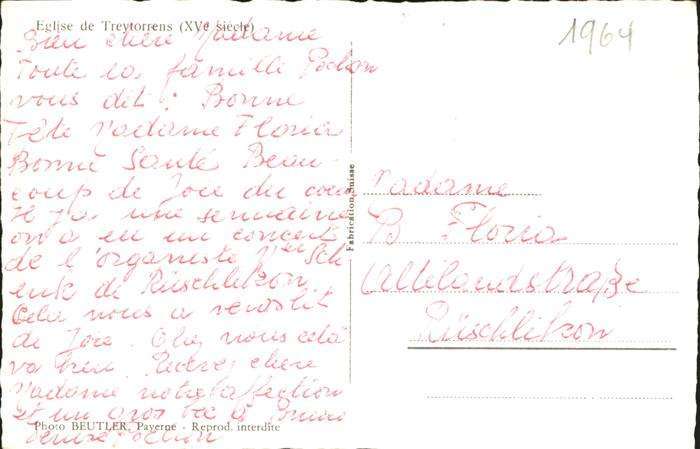 Eglise de Treytorrens (XVe siècle)
1964
Bien chère Madame
Toute la famille Pochon
vous dit : Bonne
Fête Madame Floria
Bonne Santé Beau-
coup de Joie du coeur
Il y a une semaine
on a eu un concert
de l'organiste Sch
enk de Rüschlikon
Cela nous a remplit
de Joie. Chez nous cela
va bien. Recevez chère
Madame notre affection
et un gros bec à Bruno
Denise Pochon
Photo BEUTLER, Payerne - Reprod. interdite
Fabrication Suisse
Madame
B Floria
Alilandstraße
Rüschlikon